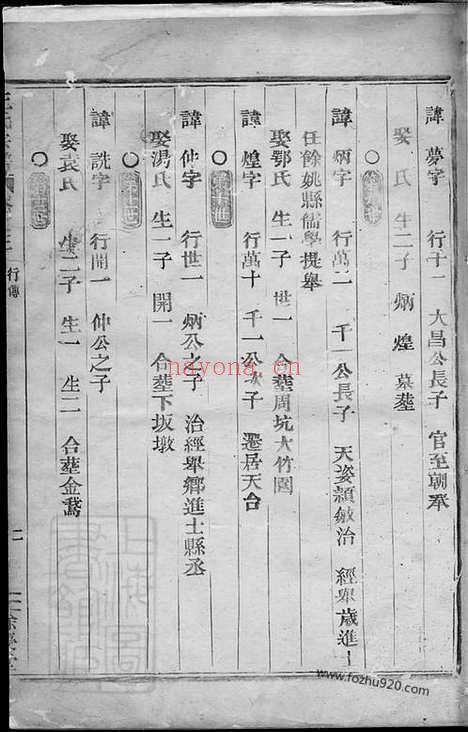 諱夢字　行千一　大昌公長子　官至朝奉
娶　氏　生二子　炳　煌　墓塟
○
諱炳字　行萬二　千一公長子　天姿頴敏治　經舉歲進士
任餘姚縣儒學提舉
娶鄂氏　生一子　世一　合塟周坑大竹園
諱煌字　行萬十　千一公次子　遷居天台
○
諱仲字　行世一　炳公之子　治經舉鄉進士縣丞
娶湯氏　生一子　開一　合塟下坂墩
○
諱詵字　行開一　仲公之子
娶袁氏　生二子　生一　生二　合塟金鵞
○
行傳
二
nayona.cn
www.fozhu920.com
上海圖書館藏